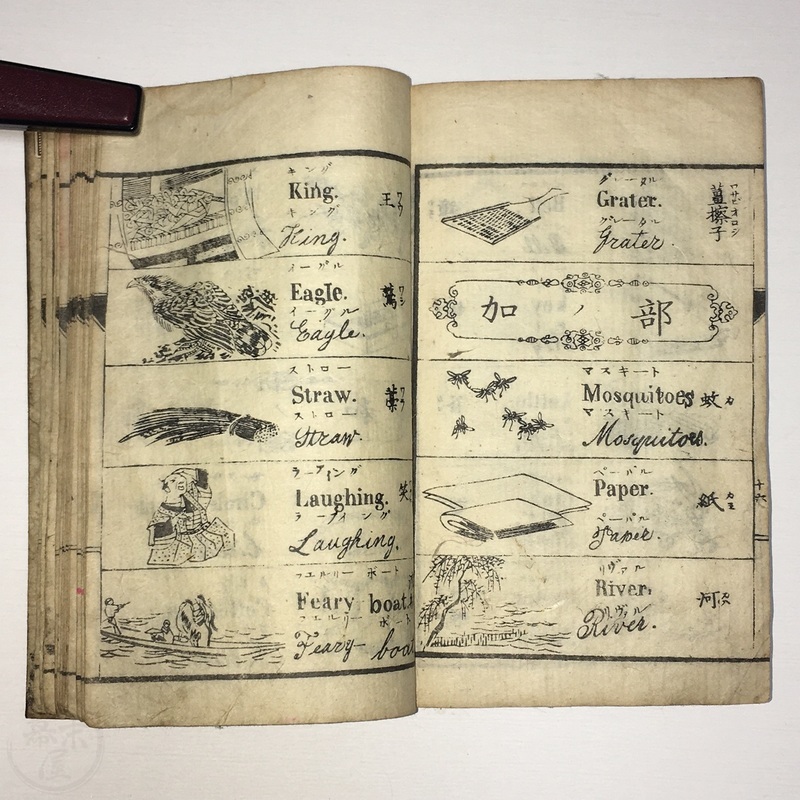 キング
King. 王 ワウ
キング
King.
イーグル
Eagle. 鷲 ワシ
イーグル
Eagle.
ストロー
Straw. 藁 ワラ
ストロー
Straw.
ラーフィング
Laughing. 笑
ラーフィング
Laughing.
フエルリー ボート
Feary boat.
フエルリー ボート
Feary boat
グレータル
Grater. 薑擦子 ワサビオロシ
グレータル
Grater.
加ノ部
マスキート
Mosquitoes 蚊 カ
マスキート
Mosquitoes.
ペーパル
Paper. 紙 カミ
ペーパル
Paper.
リヴァル
River. 河 カハ
リヴァル
River.
十六